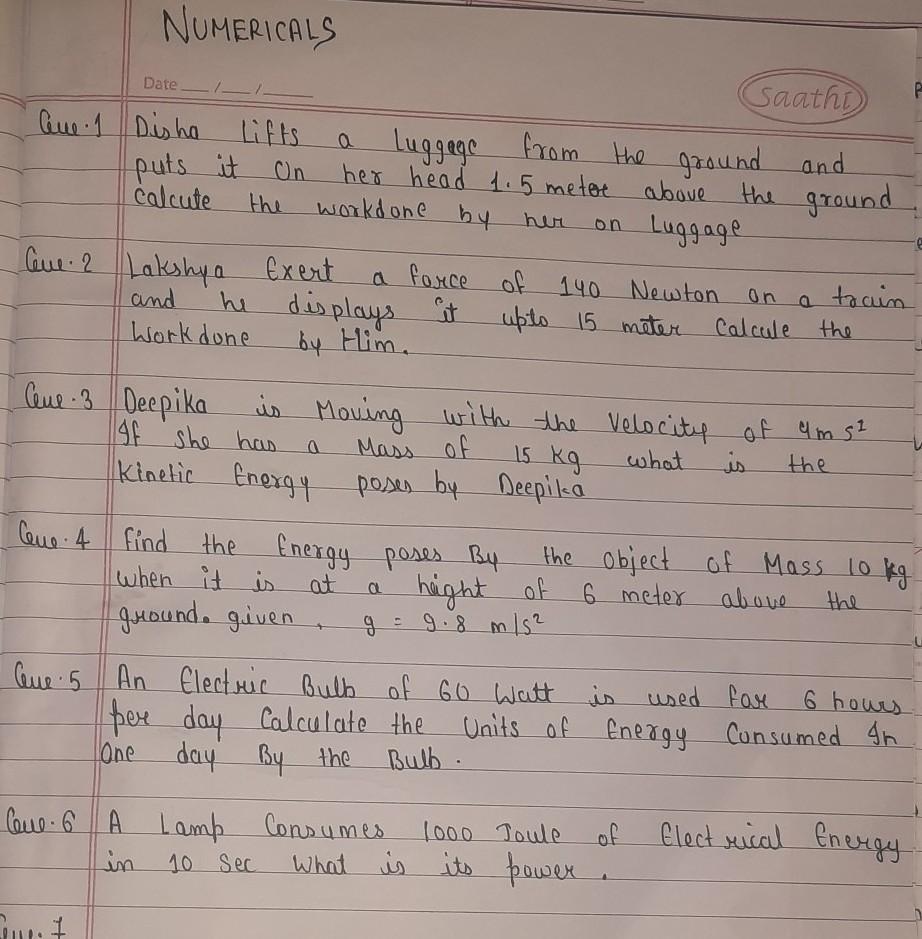 NUMERICALS
Date __/__/____
Saathi
Que.1 Disha Lifts a luggage from the ground and
puts it on her head 1.5 meter above the ground.
Calcute the workdone by her on Luggage
Que.2 Lakshya Exert a force of 140 Newton on a train
and he displays it upto 15 meter Calcule the
Workdone by Him.
Que.3 Deepika is Moving with the Velocity of 4m s²
If she has a Mass of 15 kg what is the
Kinetic Energy poses by Deepika
Que.4 Find the Energy poses By the Object of Mass 10 kg
when it is at a height of 6 meter above the
ground. given, g = 9.8 m/s²
Que.5 An Electric Bulb of 60 Watt is used for 6 hours
per day Calculate the Units of Energy Consumed In
One day By the Bulb.
Que.6 A Lamp Consumes 1000 Joule of Electrical Energy
in 10 Sec What is its power.
Que.7